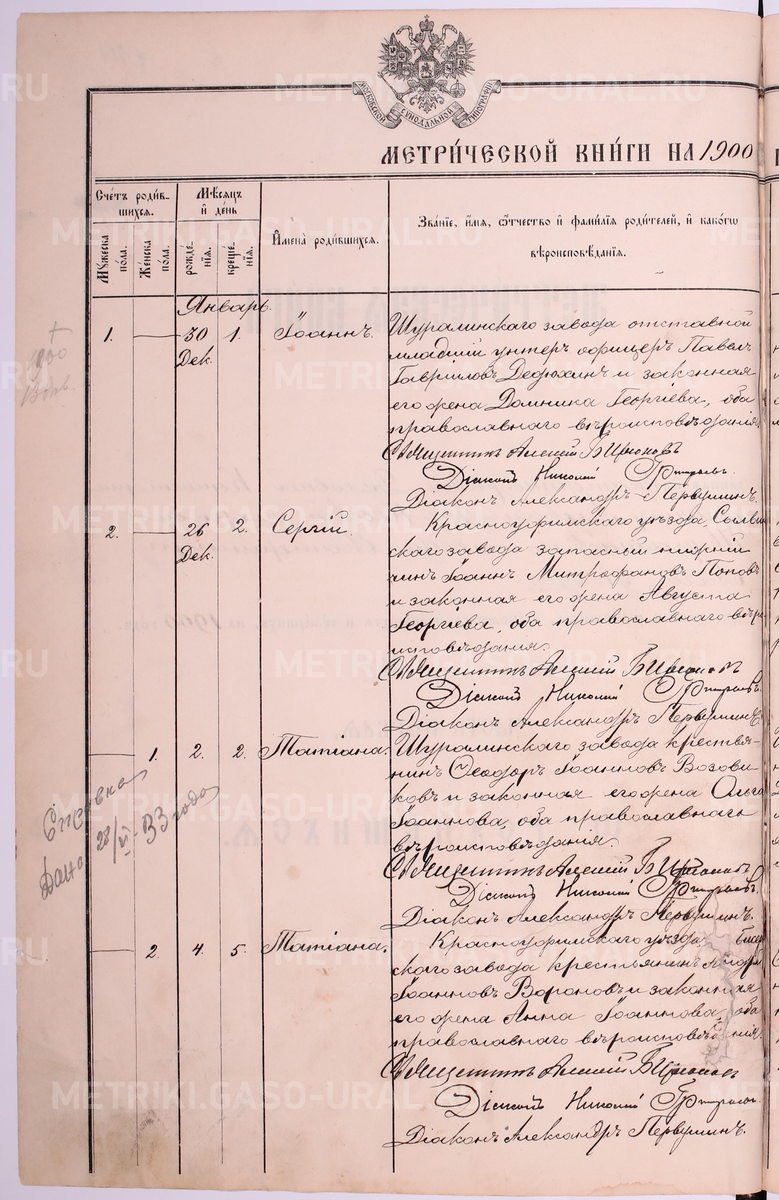 МОСКОВСКОЙ СѴНОДАЛЬНОЙ ТИПОГРАФІИ
МЕТРИЧЕСКОЙ КНИГИ НА 1900
Счетъ родив-
шихся.
Мѣсяцъ
и день
Имена родившихся.
Званіе, имя, отчество и фамилія родителей, и какого
вѣроисповѣданія.
Мужеска
пола.
Женска
пола.
рожде-
нія.
креще-
нія.
Январь.
1. 30 1. Іоаннъ.
Дек.
Шуралинскаго завода отставной
младшій унтеръ офицеръ Павелъ
Гавриловъ Дедюхинъ и законная
его жена Домника Георгіева, оба
православнаго вѣроисповѣданія.
Священникъ Алексій
Діаконъ Николай
Діаконъ Александръ Первушинъ.
2. 26 2. Сергій.
Дек.
Красноуфимскаго уѣзда, Сылвин
скаго завода запасный нижній
чинъ Іоаннъ Митрофановъ Поповъ
и законная его жена Августа
Георгіева, оба православнаго вѣро
исповѣданія.
Священникъ Алексій
Діаконъ Николай
Діаконъ Александръ Первушинъ.
1. 2. 2. Татіана.
Шуралинскаго завода крестья-
нинъ Феодоръ Іоанновъ Возови-
ковъ и законная его жена Ольга
Іоаннова, оба православнаго
вѣроисповѣданія.
Священникъ Алексій
Діаконъ Николай
Діаконъ Александръ Первушинъ.
2. 4. 5. Татіана.
Красноуфимскаго уѣзда,
скаго завода крестьянинъ Андрей
Іоанновъ Вороновъ и законная
его жена Анна Іоаннова, оба
православнаго вѣроисповѣданія.
Священникъ Алексій
Діаконъ Николай
Діаконъ Александръ Первушинъ.
1900
Справка
Дана 28/VI-33 года
METRIKI.GASO-URAL.RU